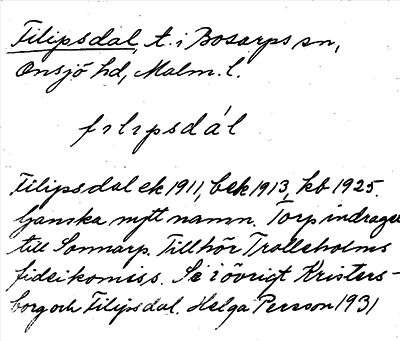 Filipsdal, t. i Bosarps sn,
Onsjö hd, Malm. l.
filipsdál
Filipsdal ek 1911, bek 1913, kb 1925.
Ganska nytt namn. Torp indraget
till Sonnarp. Tillhör Trolleholms
fideikomiss. Se i övrigt Kristers-
borg och Filipsdal. Helga Persson 1931